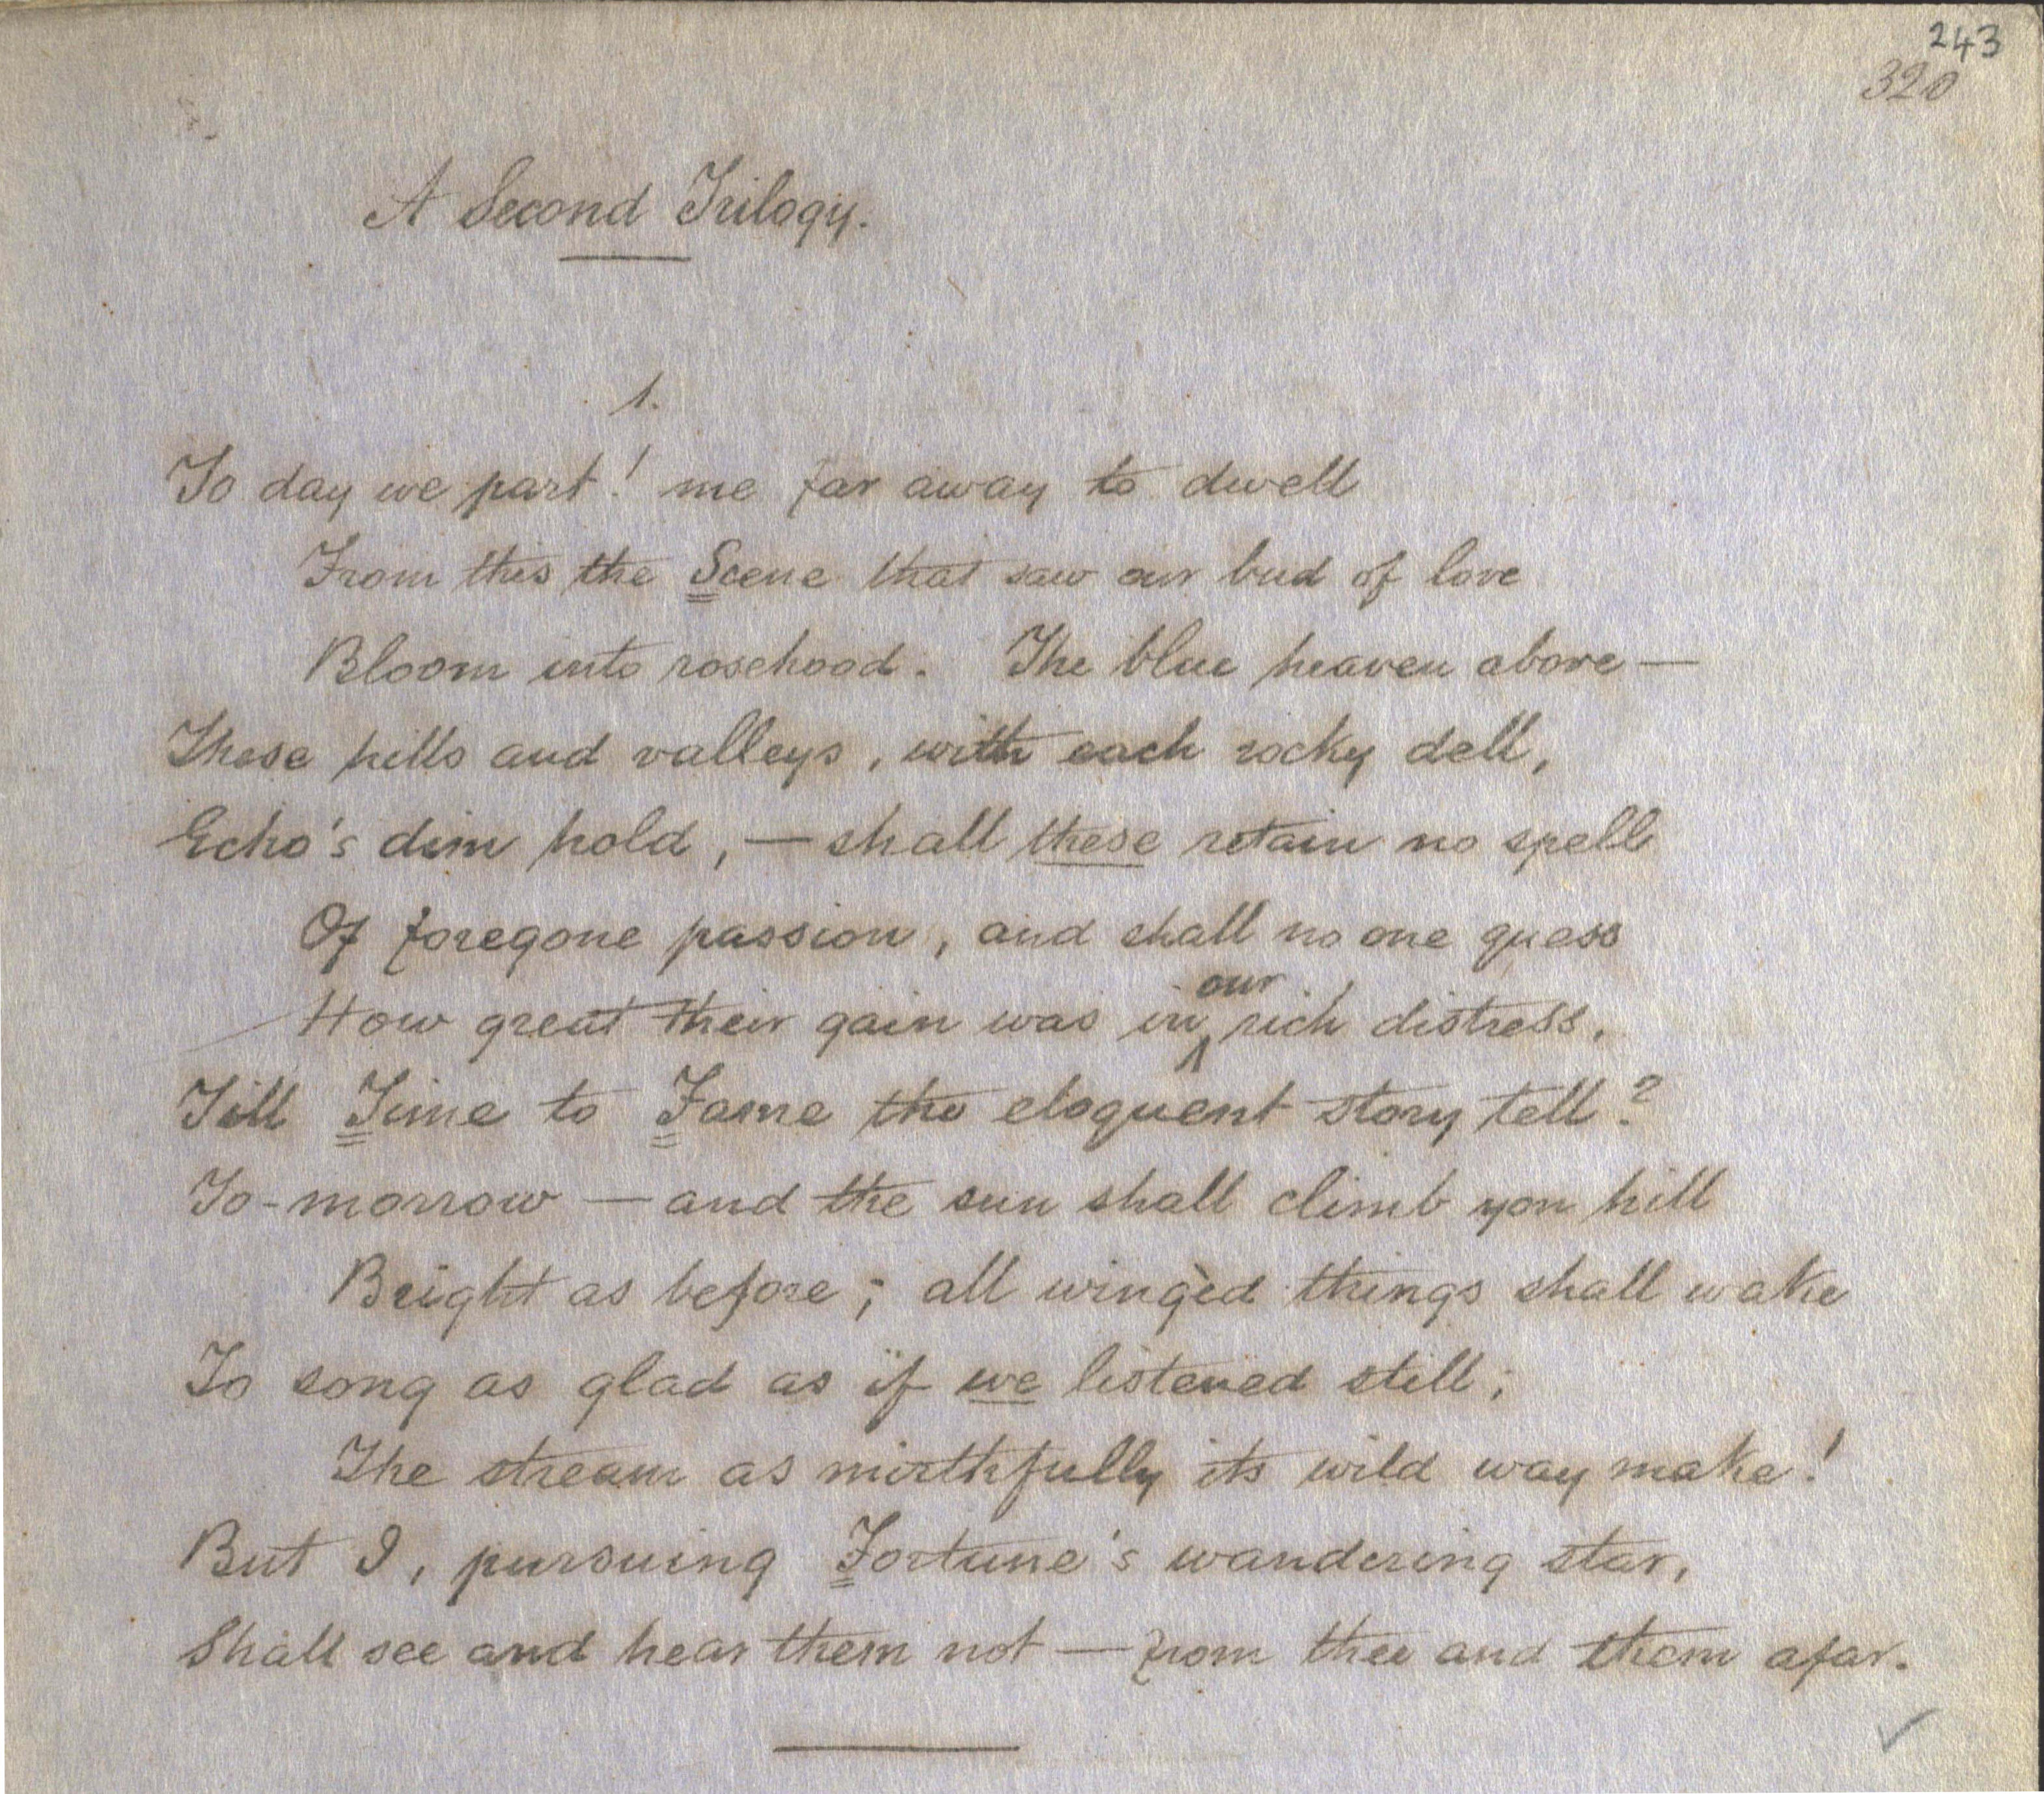 243
320
A Second Trilogy.
1.
To day we part! me far away to dwell
From this the Scene that saw our bud of love
Bloom into rosehood. The blue heaven above —
These hills and valleys, with each rocky dell,
Echo's dim hold, — shall these retain no spell
Of foregone passion, and shall no one guess
How great their gain was in our rich distress,
Till Time to Fame the eloquent story tell?
To-morrow — and the sun shall climb yon hill
Bright as before; all wingèd things shall wake
To song as glad as if we listened still;
The stream as mirthfully its wild way make!
But I, pursuing Fortune's wandering star,
Shall see and hear them not — from thee and them afar.